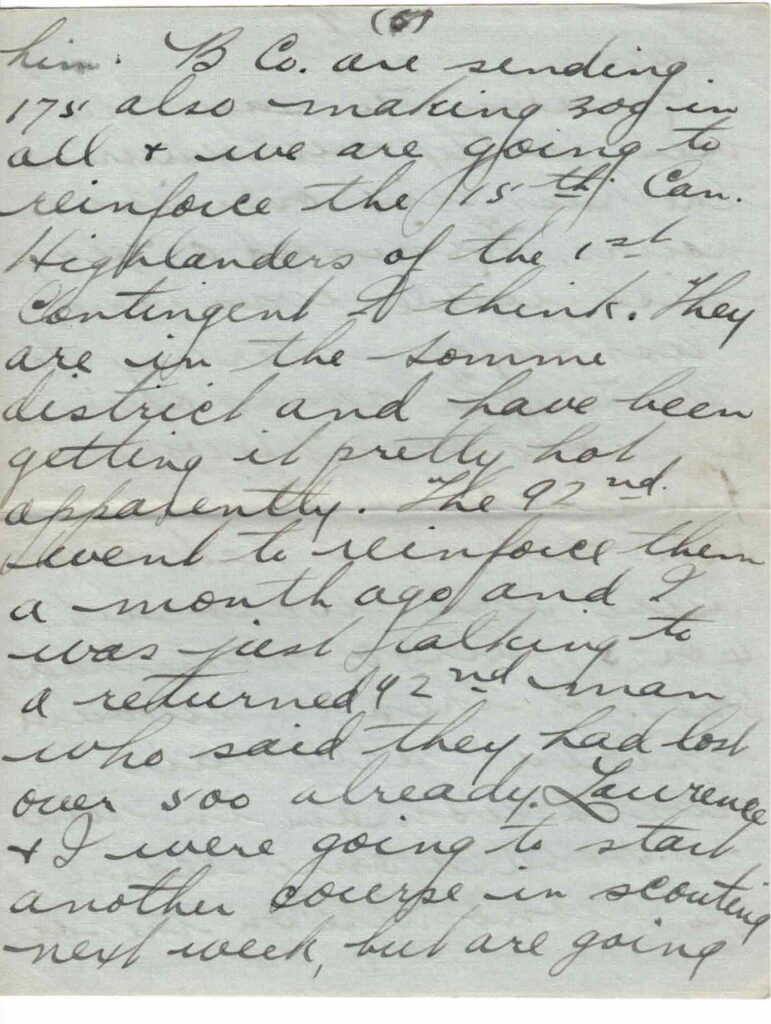 (6)
him. B Co. are sending
175 also making 300 in
all & we are going to
reinforce the 15th Can.
Highlanders of the 1st
Contingent I think. They
are in the Somme
district and have been
getting it pretty hot
apparently. The 92nd.
went to reinforce them
a month ago and I
was just talking to
a returned 92nd man
who said they had lost
over 500 already. Laurence
& I were going to start
another course in scouting
next week, but are going